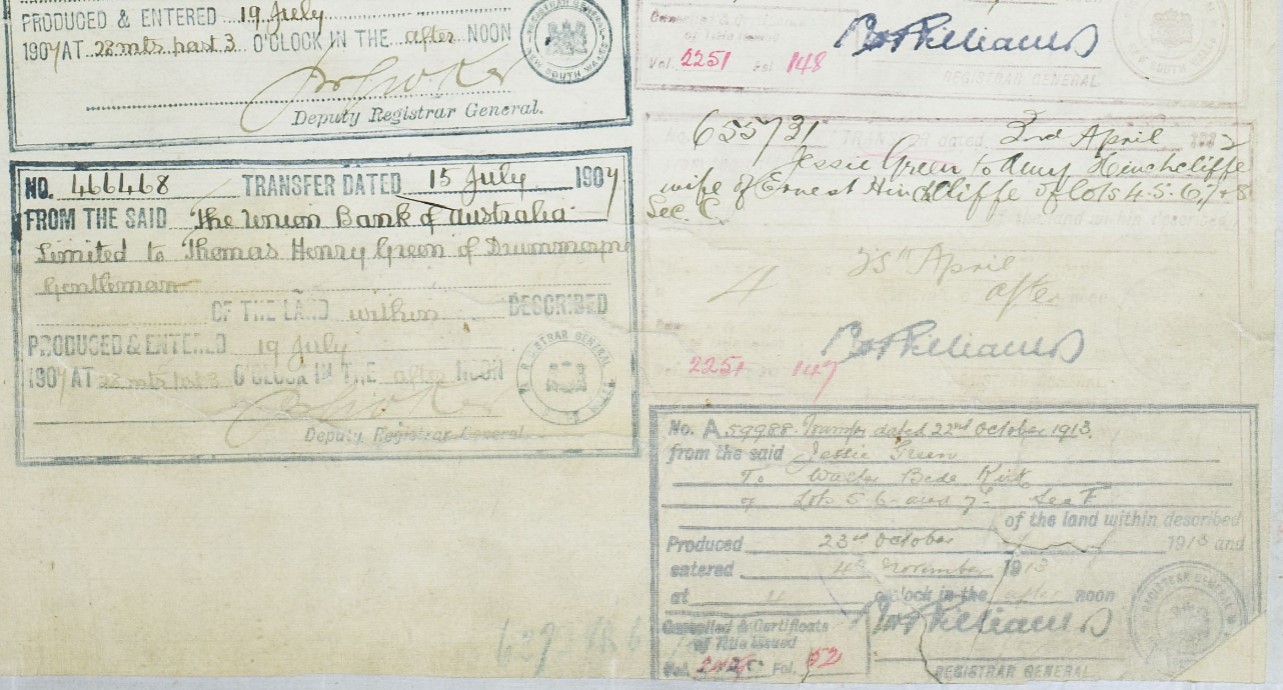 PRODUCED & ENTERED 19 July
1907 AT 28 mts past 3 O'CLOCK IN THE after NOON
Deputy Registrar General.
NO. 466468 TRANSFER DATED 15 July 1907
FROM THE SAID The Union Bank of Australia
Limited to Thomas Henry Green of Drummoyne
Gentleman
OF THE LAND within DESCRIBED
PRODUCED & ENTERED 19 July
1907 AT 28 mts past 3 O'CLOCK IN THE after NOON
REGISTRAR GENERAL
Deputy Registrar General.
Vol. 2251 Fol. 148
REGISTRAR GENERAL
655731 TRANSFER dated 2nd April
Jessie Green to Amy Hinchcliffe
wife of Ernest Hinchcliffe of lots 4. 5. 6. 7 & 8
Sec. C.
within described
4 25th April
after noon
2251 147
No. A 59988 Transfer dated 22nd October 1913.
from the said Jessie Green
To Walter Bede Kirk
of Lots 5 6 and 7 Sec F
of the land within described
Produced 23rd October 1913 and
entered 4th November 1913
at o'clock in the after noon
Cancelled & Certificate
of Title Issued
Vol. Fol. 52
REGISTRAR GENERAL